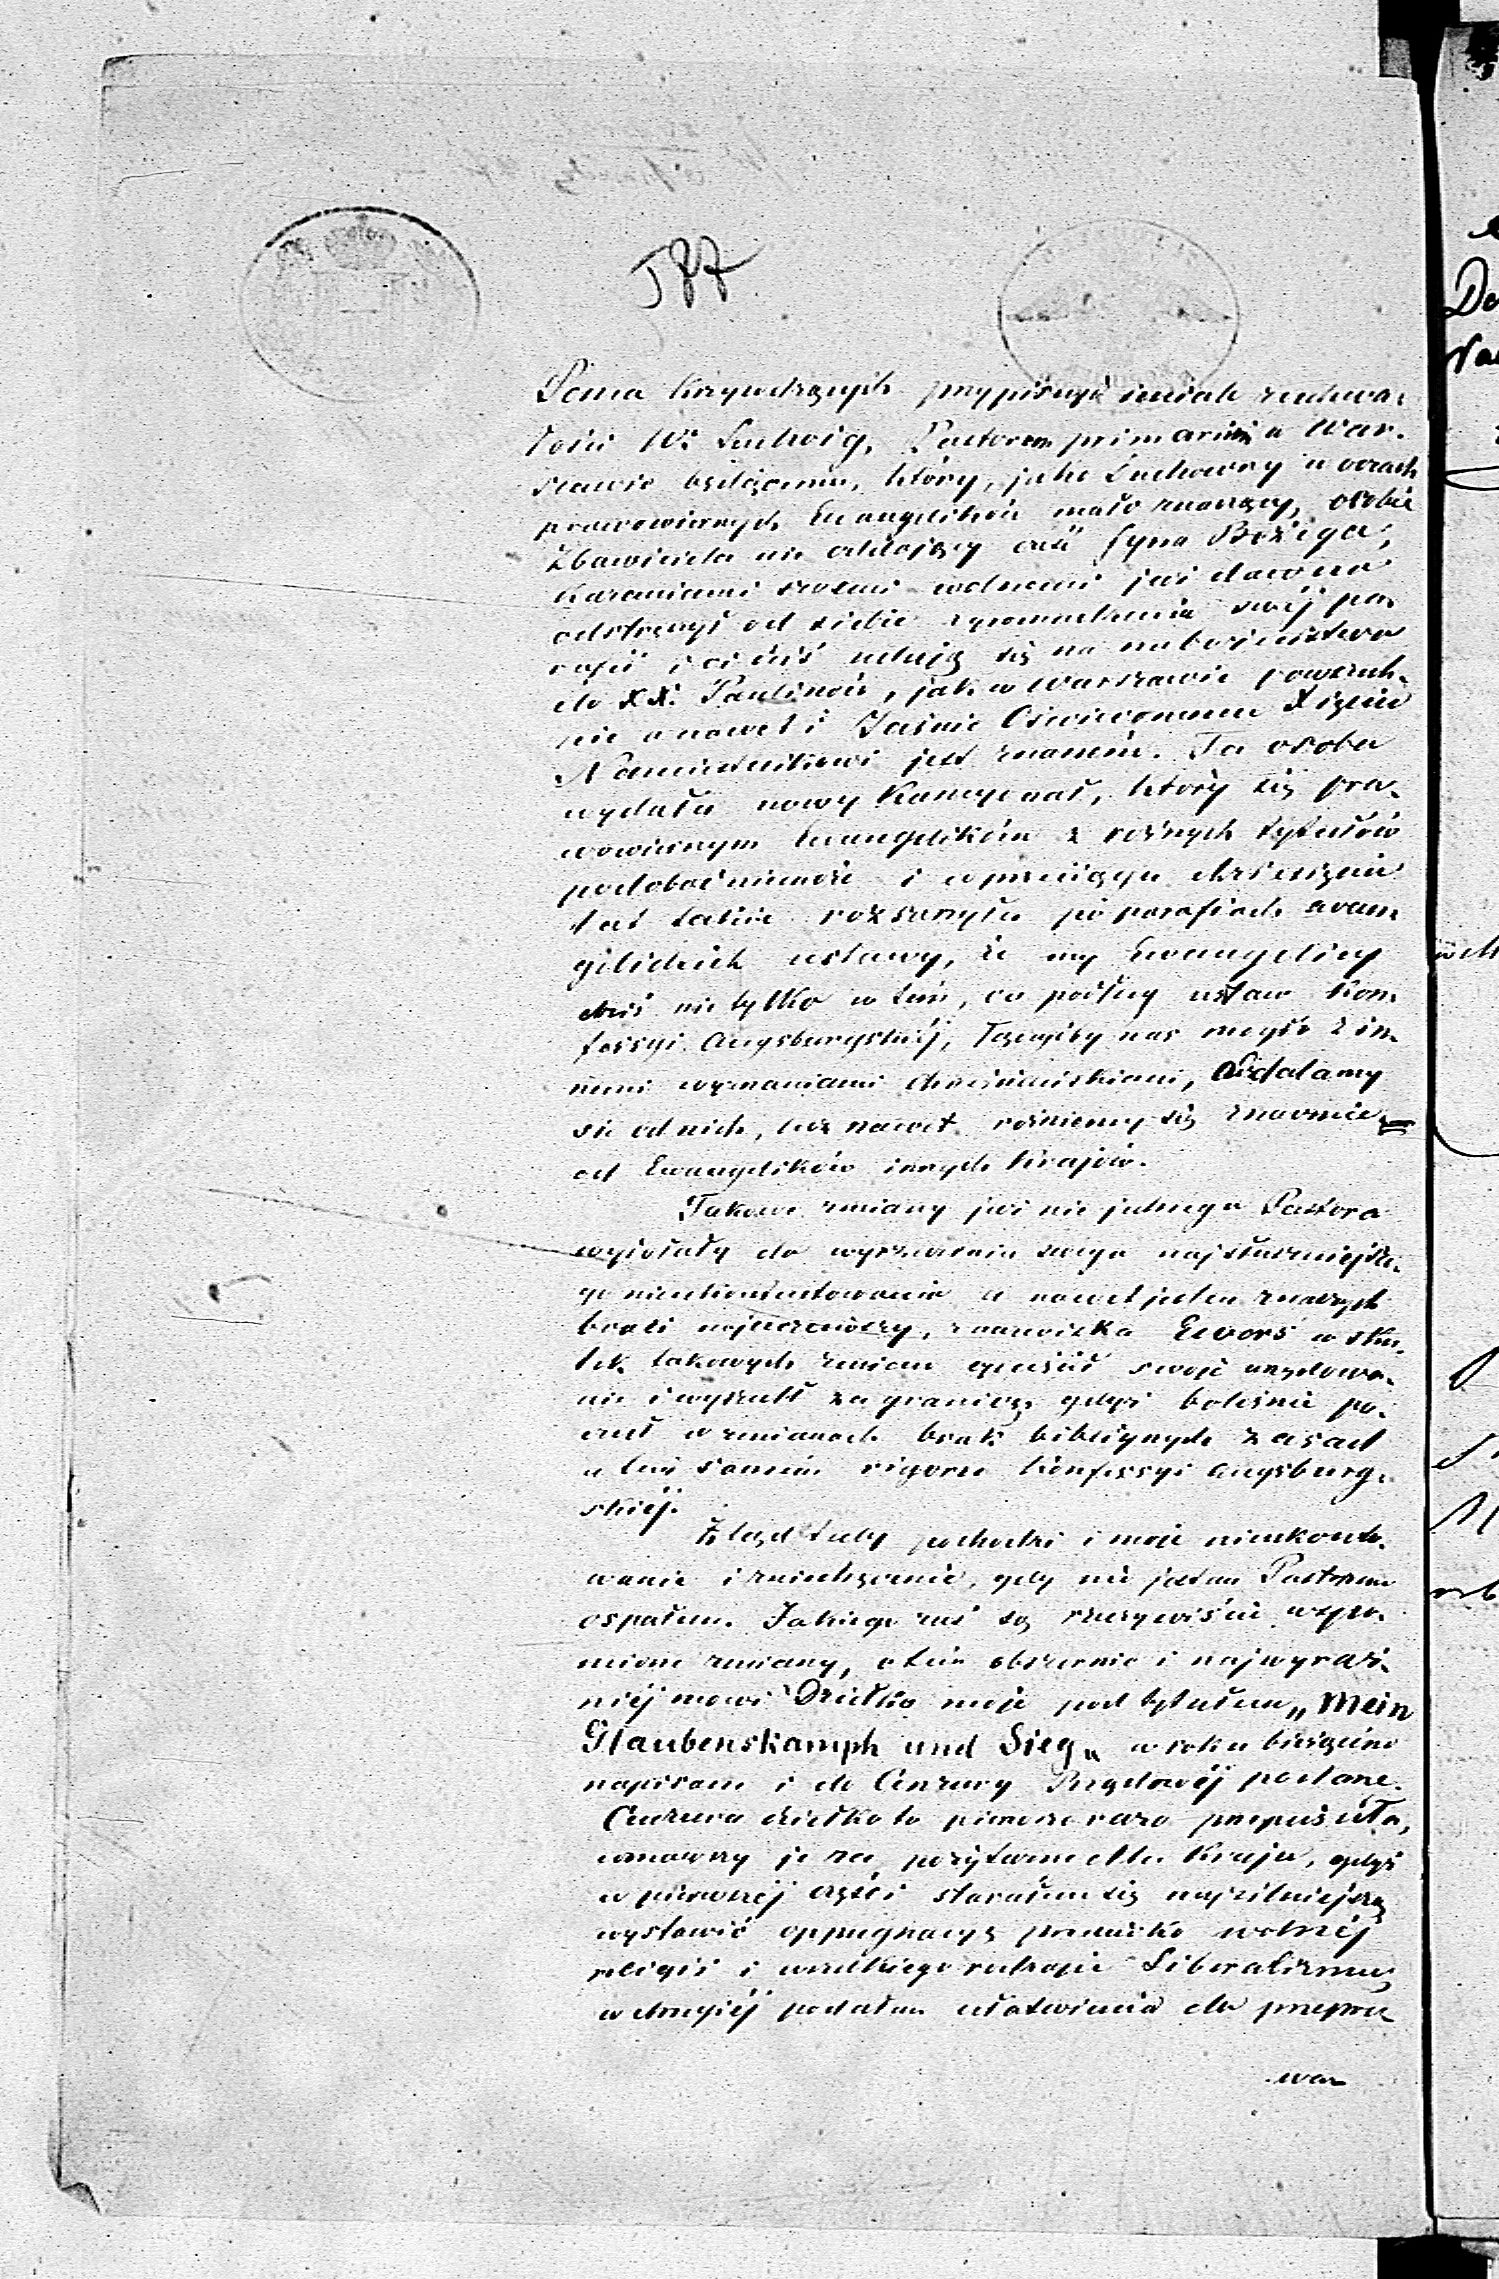 577
krzywdzących przypisuję zuchwa-
łości Wo Ludwig, Pastorem primarium w War-
szawie będącemu, który, jako Duchowny w oczach
prawowiernych Ewangelików mało znaczący, osobie
Zbawiciela nie oddający czci Syna Bożego,
Kazaniami swemi wolnemi już dawno
odstręczył od siebie zgromadzenie swéj pa-
rafii i ci dziś udają się na nabożeństwo
do XX. Paulinów, jak w Warszawie powszech-
nie a nawet i Jaśnie Oświeconemu Xięciu
Namiestnikowi jest znaném. Ta osoba
wydała nowy Kancyonał, który się pra-
wowiernym Ewangelikom z rożnych tytułów
podobać nie może i w przeciągu dziesięciu
lat takie rozszerzyła po parafiach ewan-
gelickich ustawy, że my Ewangelicy
dziś nie tylko w tém, co podług ustaw Kon-
fessyi Augsburgskiéj, łączyćby nas mogło z in-
nemi wyznaniami chrześciańskiemi, oddalamy
sie od nich, lecz nawet rożniemy się znacznie
od Ewangelików innych Krajów.
Takowe zmiany już nie jednego Pastora
wywołały do wyrzeczenia swego najsłuszniejsze-
go nieukontentowania a nawet jeden z naszych
braci najuczeńszy, nazwiska Ewors w sku-
tek takowych zmian opuścił swoje urzędowa-
nie i wyszedł za granicę, gdyż boleśnie po-
czuł w zmianach brak biblijnych zasad
a tém samém rigoru Konfessyi Augsburg-
skiéj.
Ztąd tedy pochodzi i moje nieukonte-
wanie i zniechęcenie, gdy nie jestem Pastorem
ospałem. Jakiego zaś są rzeczywiście wspo-
mione zmiany, o tém obszernie i najwyraź-
niéj mowi Dziełko moje pod tytułem „Mein
Glaubenskamph und Sieg„ w roku bieżącém
napisane i do Cenzury Rządowéj podane.
Cenzura dziełko to pierwszą razą przepuściła,
uznawszy je za pożyteczne dla Kraju, gdyż
w pierwszéj części starałem się najsilniejszą
wystawić oppugnacyę przeciwko wolnéj
religii i wszelkiego rodzaju Liberalizmu,
w drugiéj podałem ułatwienia do przepro-
wa-